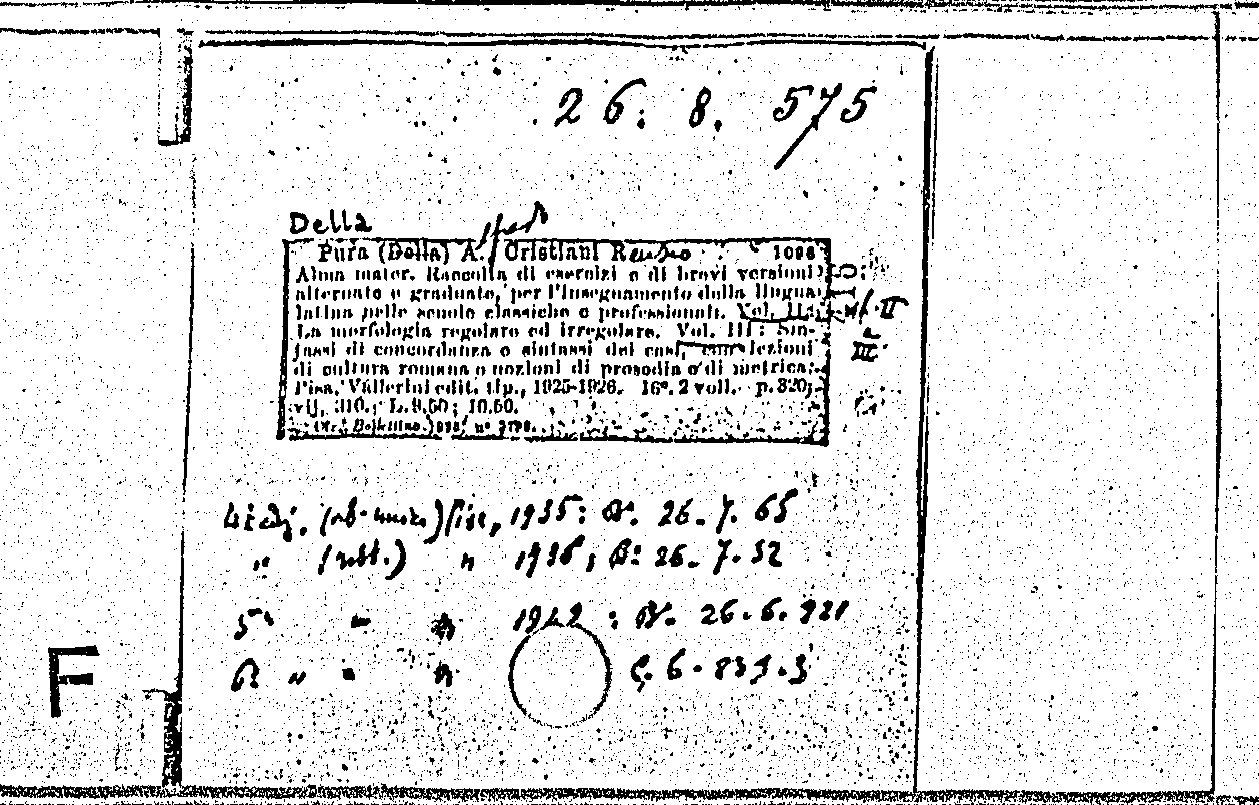 26. 8. 575
Della
Pura (Della) A. Cristiani R 1096
Alma mater. Raccolta di esercizi e di brevi versioni
alternate e graduate, per l'insegnamento della lingua
latina nelle scuole classiche e professionali. Vol. II:
La morfologia regolare ed irregolare. Vol. III: Sin-
tassi di concordanza e sintassi dei casi, con lezioni
di cultura romana e nozioni di prosodia e di metrica.
Pisa, Vallerini edit. tip., 1925-1926. 16°. 2 voll. p. 320;
vij, 310. L. 9.50; 10.50.
II
e
III
1935: 26. 7. 65
" " 1936; 26. 7. 52
5ª " 1942: 26. 6. 921
6ª " " C. 6. 839. 3
F